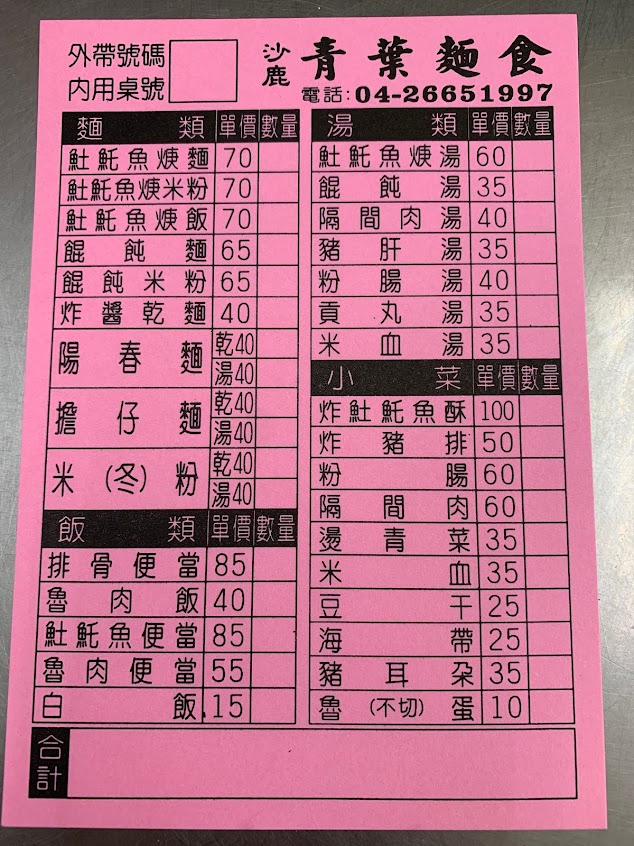 外帶號碼
內用桌號
沙鹿 青葉麵食
電話:04-26651997
麵類 單價 數量
𩵚魠魚焿麵 70
𩵚魠魚焿米粉 70
𩵚魠魚焿飯 70
餛飩麵 65
餛飩米粉 65
炸醬乾麵 40
陽春麵 乾40
湯40
擔仔麵 乾40
湯40
米(冬)粉 乾40
湯40
飯類 單價 數量
排骨便當 85
魯肉飯 40
𩵚魠魚便當 85
魯肉便當 55
白飯 15
湯類 單價 數量
𩵚魠魚焿湯 60
餛飩湯 35
隔間肉湯 40
豬肝湯 35
粉腸湯 40
貢丸湯 35
米血湯 35
小菜 單價 數量
炸𩵚魠魚酥 100
炸豬排 50
粉腸 60
隔間肉 60
燙青菜 35
米血 35
豆干 25
海帶 25
豬耳朵 35
魯(不切)蛋 10
合計